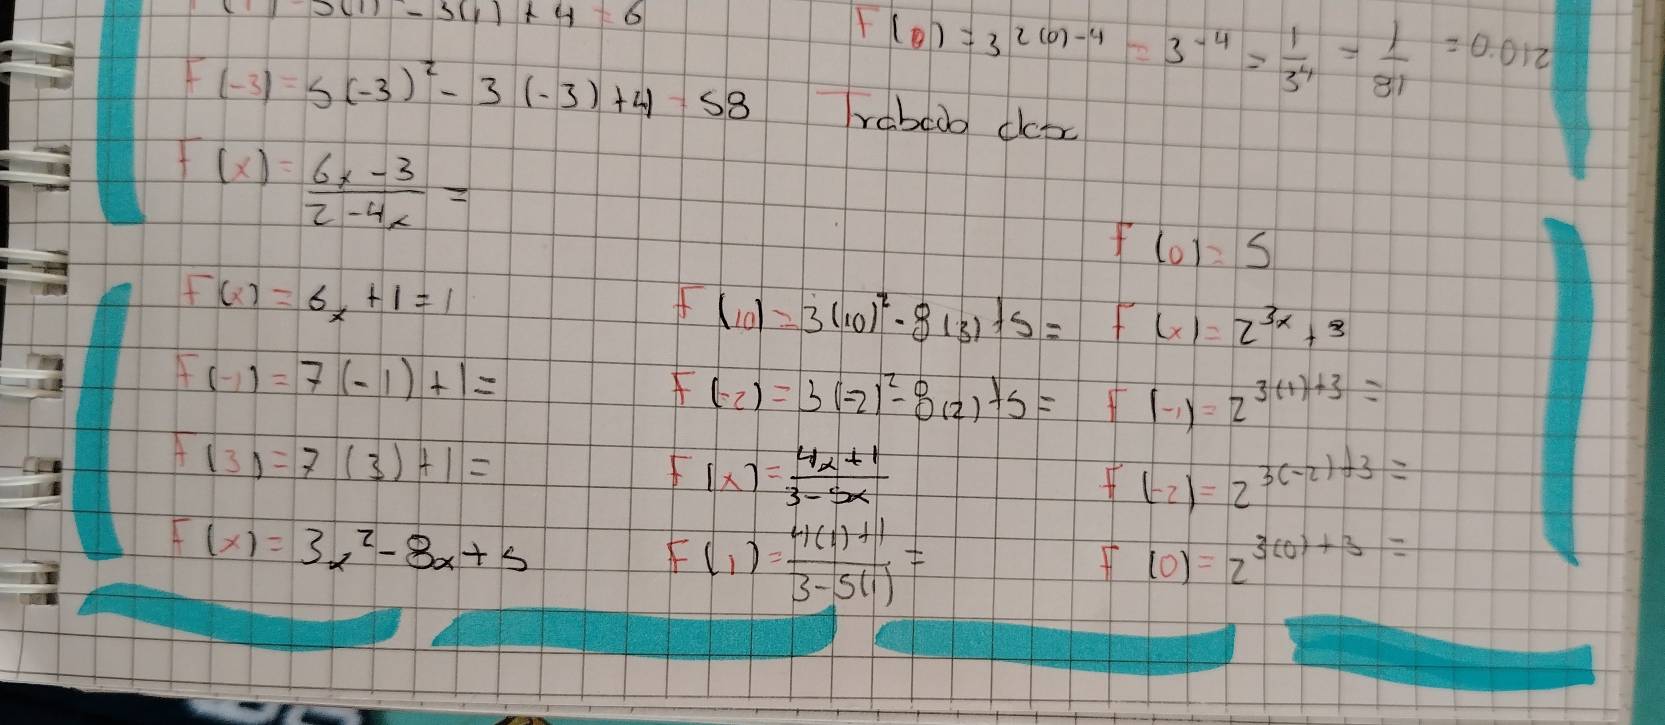 F(1) = 5(1) - 3(1) + 4 = 6
F(-3) = 5(-3)² - 3(-3) + 4 = 58
F(x) = 6x - 3 / 2 - 4x =
F(x) = 6x + 1 = 1
F(-1) = 7(-1) + 1 =
F(3) = 7(3) + 1 =
F(x) = 3x² - 8x + 5
F(0) = 3^2(0)-4 = 3^-4 = 1/3^4 = 1/81 = 0.012
F(10) = 3(10)² - 8(3) + 5 =
F(-2) = 3(-2)² - 8(2) + 5 =
F(x) = 4x + 1 / 3 - 5x
F(1) = 4(1) + 1 / 3 - 5(1) =
F(0) = 5
F(x) = 2^3x + 3
F(-1) = 2^3(1)+3 =
F(-2) = 2^3(-2)+3 =
F(0) = 2^3(0)+3 =